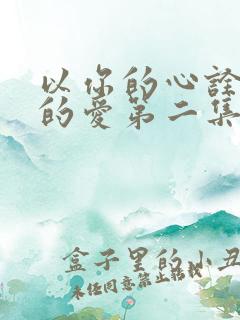 以你的心诠
的爱第二集
盒子里的小丑
未任同意禁止转载